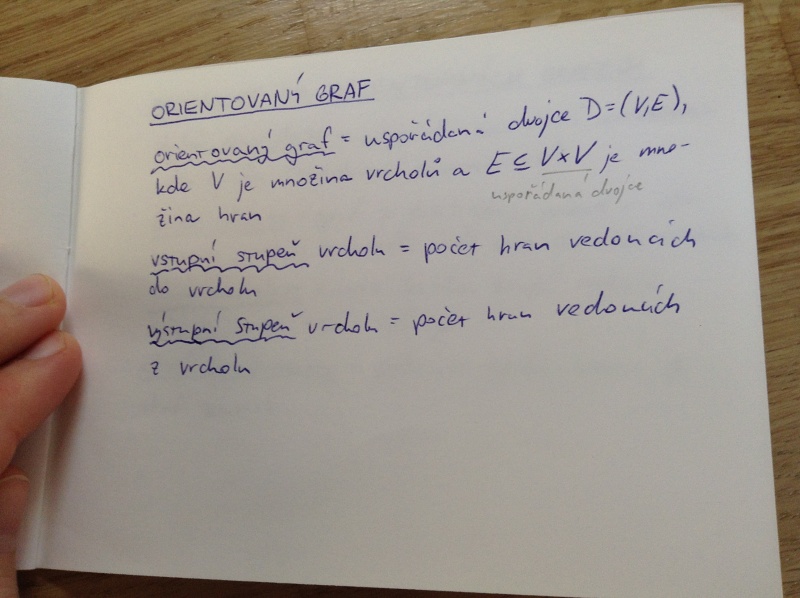 ORIENTOVANÝ GRAF
orientovaný graf = uspořádaná dvojce D=(V,E),
kde V je množina vrcholů a E ⊆ V×V je mno-
uspořádaná dvojce
žina hran
vstupní stupeň vrcholu = počet hran vedoucích
do vrcholu
výstupní stupeň vrcholu = počet hran vedoucích
z vrcholu